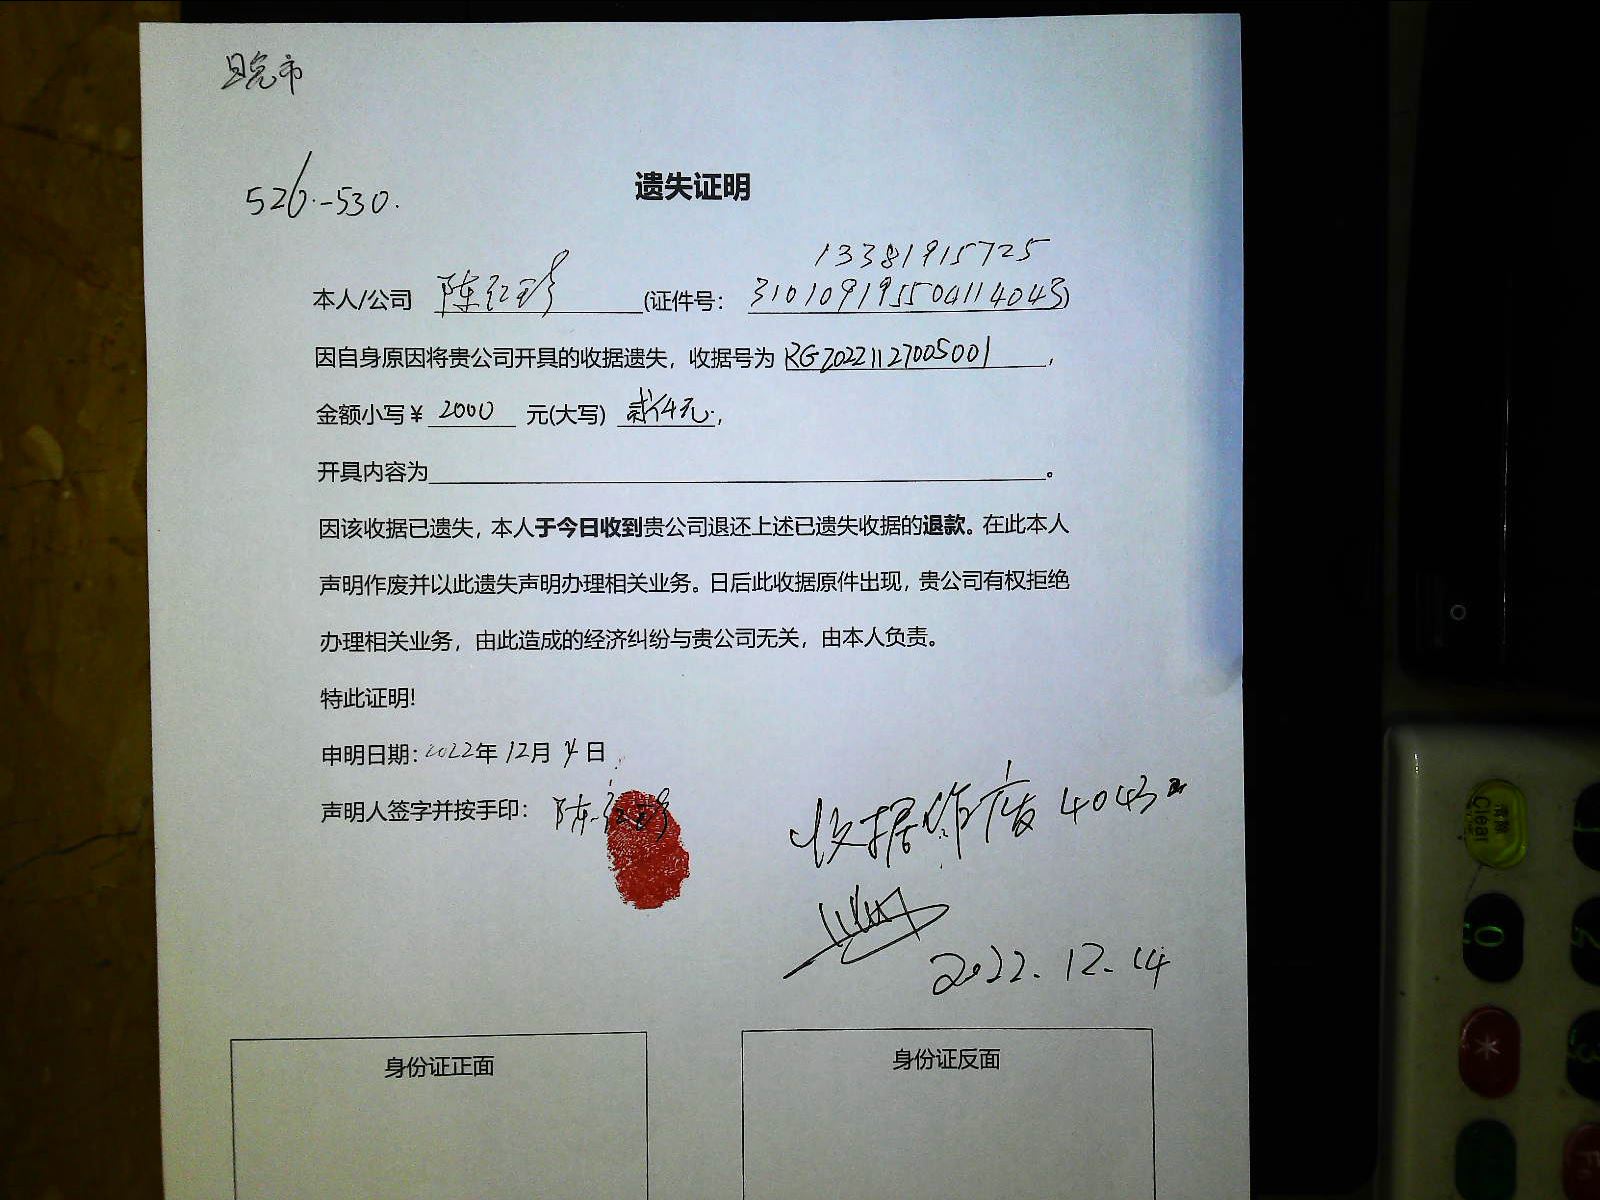 526.-530.
遗失证明
13381915725
本人/公司 陈红珍 (证件号： 310109195504114043)
因自身原因将贵公司开具的收据遗失，收据号为 RG20221127005001，
金额小写￥ 2000 元(大写) 贰仟元，
开具内容为 。
因该收据已遗失，本人于今日收到贵公司退还上述已遗失收据的退款。在此本人
声明作废并以此遗失声明办理相关业务。日后此收据原件出现，贵公司有权拒绝
办理相关业务，由此造成的经济纠纷与贵公司无关，由本人负责。
特此证明!
申明日期：2022年 12月 4 日
声明人签字并按手印： 陈红珍
收据作废 4043
2022.12.14
身份证正面 身份证反面
Clear
0
*